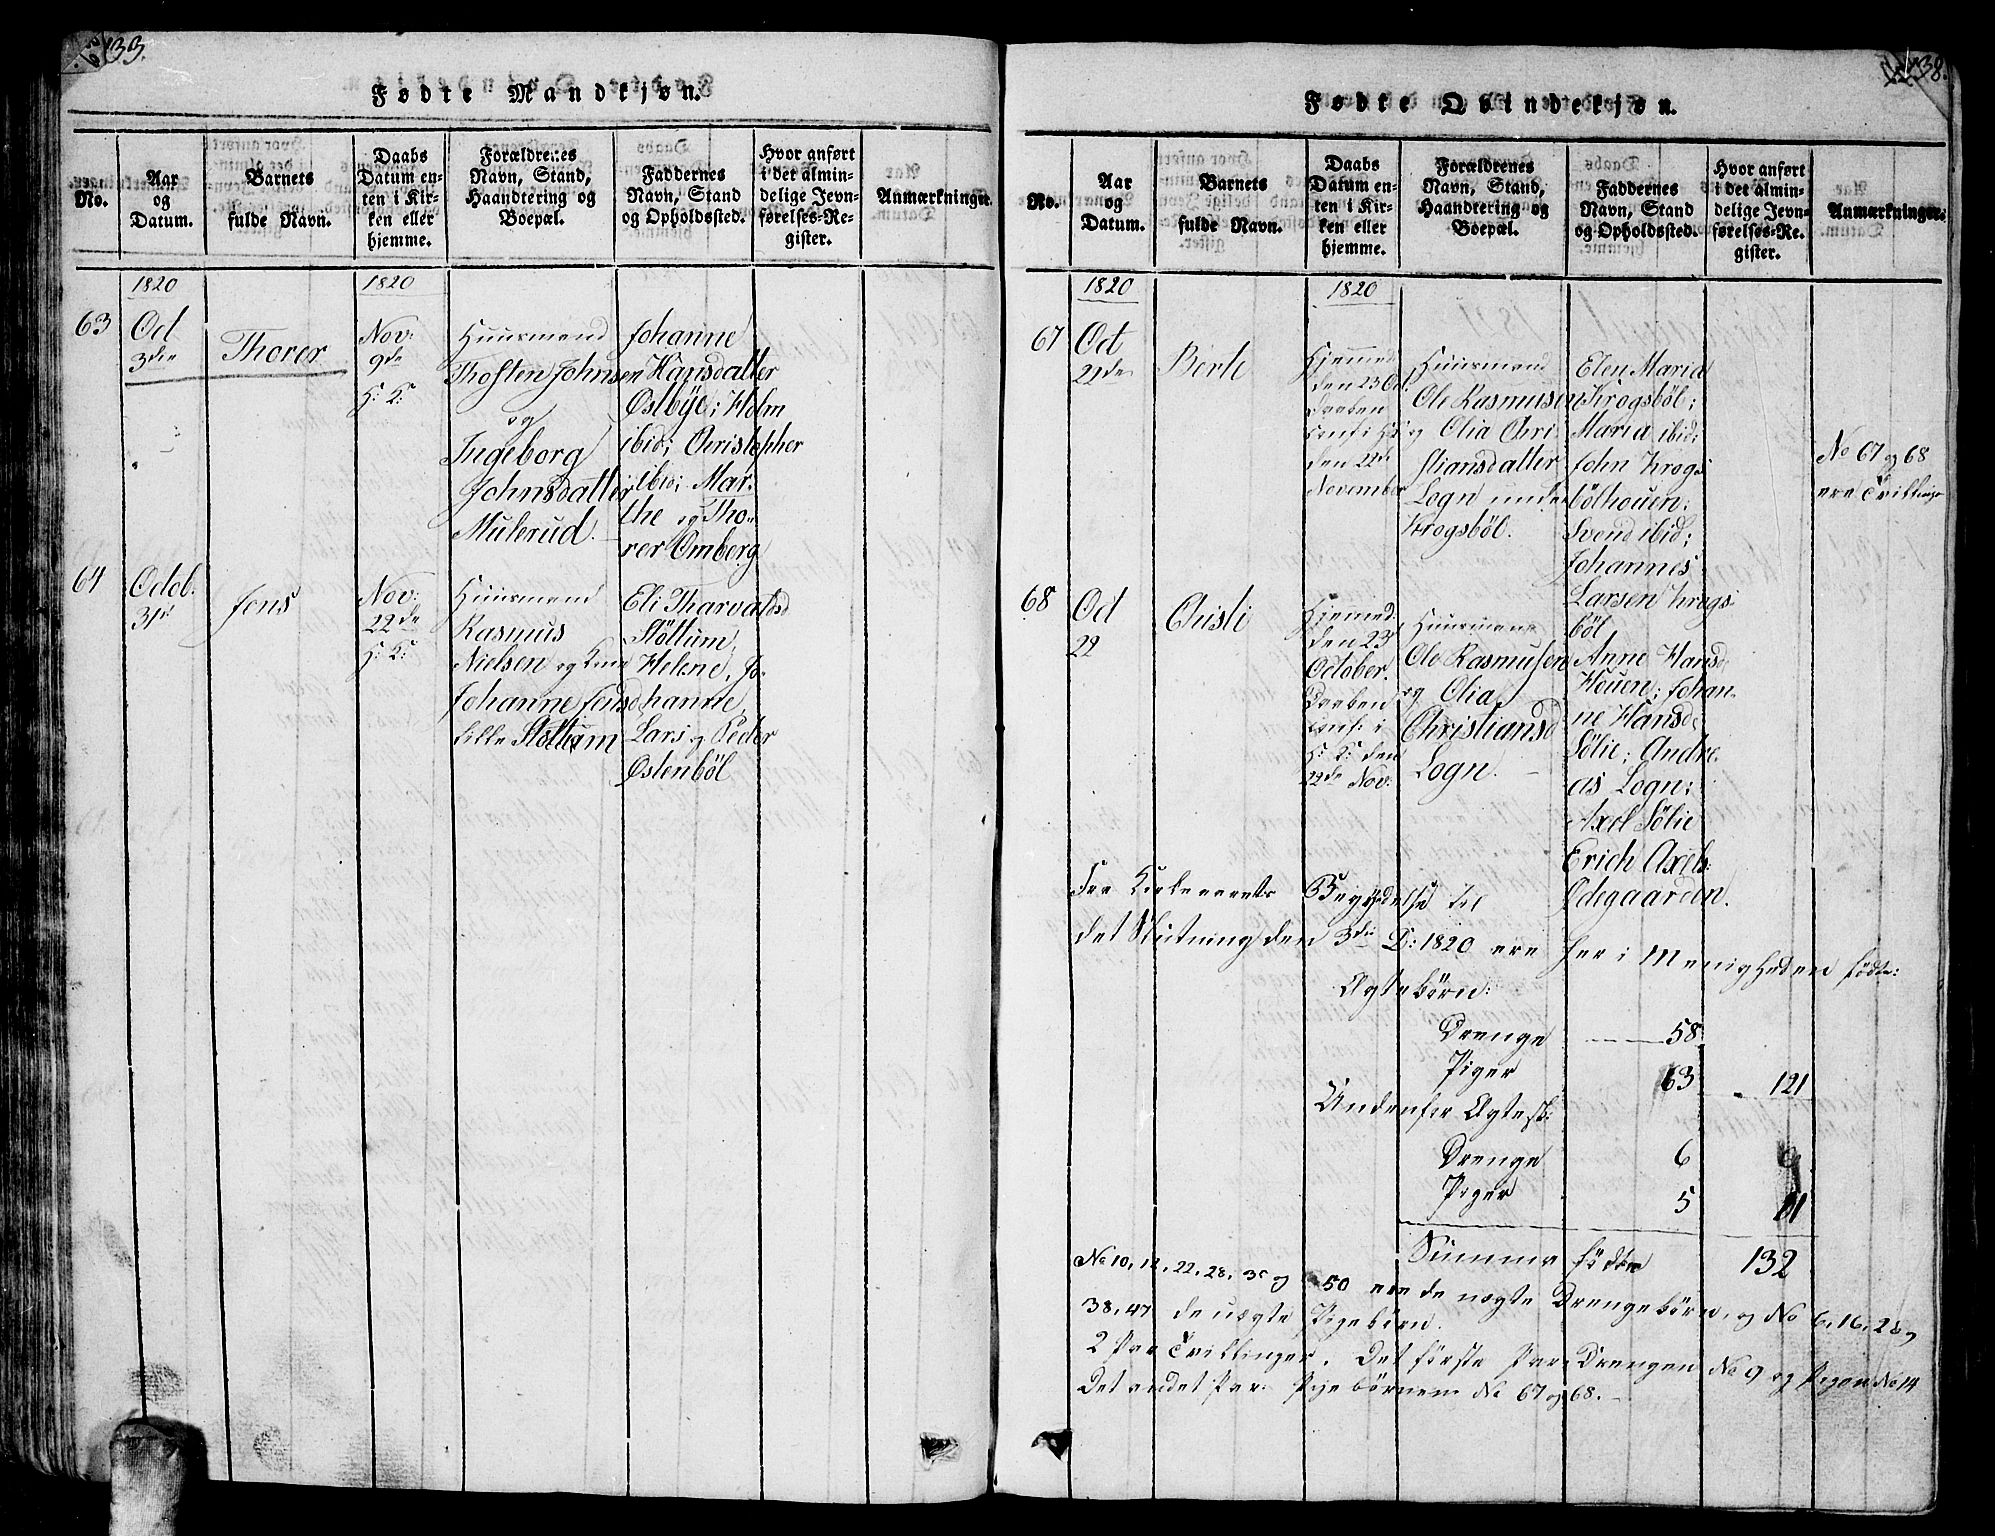 133.
Fødte Mandkjøn.
No.
Aar og Datum.
Barnets fulde Navn.
Daabs Datum enten i Kirken eller hjemme.
Forældrenes Navn, Stand, Haandtering og Boepæl.
Faddernes Navn, Stand og Opholdssted.
Hvor anført i det almindelige Jevnførelses-Register.
Anmærkninger.
1820
1820
63
Oct
3die
Thorer
Nov:
9de
H: K:
Huusmand
Thosten Johnsen
og
Ingeborg
Johnsdatter
Mulerud.
Johanne
Hansdatter
Østbye; Holm
ibid; Christopher
ibid; Mar-
the og Tho-
rer Omberg
64
Octob:
31te
Jens
Nov:
22de
H: K:
Huusmand
Rasmus
Nielsen og Kone
Johanne Jensd
lille Støttum
Eli Tharvaldsd
Støttum,
Helene, Jo-
hanne,
Lars og Peder
Østenböl
138.
Fødte Qvindekjøn.
No.
Aar og Datum.
Barnets fulde Navn.
Daabs Datum enten i Kirken eller hjemme.
Forældrenes Navn, Stand, Haandtering og Boepæl.
Faddernes Navn, Stand og Opholdssted.
Hvor anført i det almindelige Jevnførelses-Register.
Anmærkninger.
1820
1820
67
Oct
22de
Berte
Hjemmed
den 23 Oct
Daaben
conf: i H: K:
den 22de
November
Huusmand
Ole Rasmusen
og Olia Chri-
stiansdatter
Logn under
Krogsböl.
Elen Maria
Krogsböl;
Maria ibid;
John Krogs-
bölhouen;
Svend ibid;
Johannes
Larsen Krogs-
böl,
No 67 og 68
ere Tvillinger
68
Oct
22
Gusti
Hjemmed
den 23
October.
Daaben
conf: i
H: K: den
22de Nov:
Huusmand
Ole Rasmusen
og Olia
Christiansd
Logn.
Anne Hansd
Houen; Johan-
ne Hansd
Sölie; Andre-
as Logn;
Axel Sölie
Erich Axels:
Ødegaarden.
Fra Kirkeaarets Begyndelse til
det Slutning den 3die D: 1820 ere her i Menigheden födte:
Ægtebörn:
Drenge 58
Piger 63 121
Udenfor Ægtesk:
Drenge 6
Piger 5 11
Summa födte 132
No 10, 12, 22, 28, 30 og 50 ere de uægte Drengebörn, og No 6, 16, 28,
38, 47 de uægte Pigebörn.
2 Par Tvillinger. Det förste Par Drengen No 9 og Pigen No 14
Det andet Par: Pigebörnene No 67 og 68.